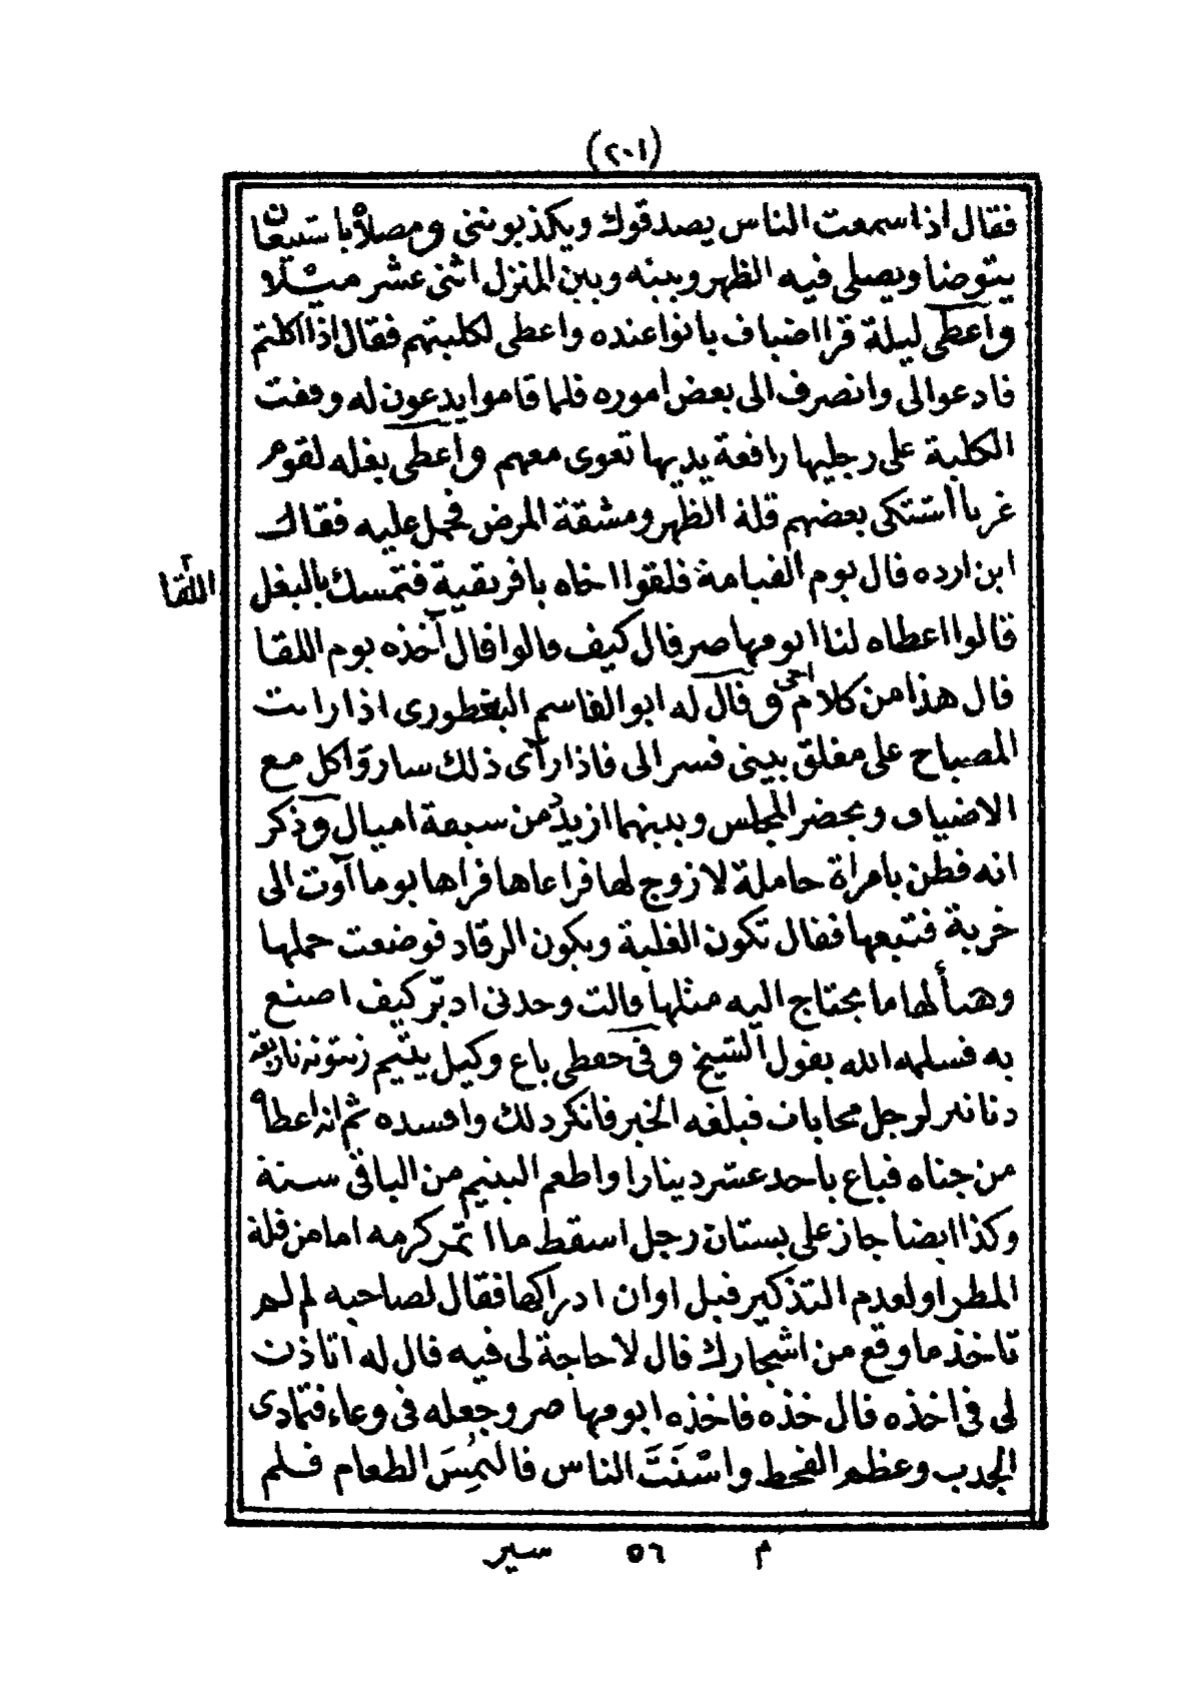 (٢٠١)
فقال اذا سمعت الناس يصدقوك ويكذبوننى ومصلاه باشيبعان
يتوضا ويصلى فيه الظهر وبينه وبين المنزل اثنى عشر ميلا
واعطى ليلة قرا اضياف باتوا عنده واعطى لكلبتهم فقال اذا اكلتم
فادعوا لى وانصرف الى بعض اموره فلما قاموا يدعون له وقفت
الكلبة على رجليها رافعة يديها تعوى معهم واعطى بغله لقوم
غربا اشتكى بعضهم قلة الظهر ومشقة المرض فحمل عليه فقال
ابن ارده قال يوم القيامة فلقوا اخاه بافريقية فتمسك بالبغل
اللقا
قالوا اعطاه لنا ابو مهاصر قال كيف قالوا قال آخذه يوم اللقا
قال هذا من كلام اخى وقال له ابو القاسم البغطورى اذا رايت
المصباح على مغلق بيتى فسر الى فاذا رآى ذلك سار وَاكل مع
الاضياف وبحضر المجلس وبينهما ازيد من سبعة اميال وذكر
انه فطن بامراة حاملة لا زوج لها فراعاها فراها يوما آوت الى
خربة فتبعها فقال تكون الغلبة ويكون الرقاد فوضعت حملها
وهيأ لها ما يحتاج اليه مثلها قالت وحدنى ادبّر كيف اصنع
به فسلمه الله بقول الشيخ وفى حفظى باع وكيل يتيم زيتونه باربعة
دنانير لرجل محابات فبلغه الخبر فانكر ذلك وافسده ثم انه اعطاه
من جناه فباع باحد عشر دينارا واطعم اليتيم من الباقى سنة
وكذا ايضا جاز على بستان رجل اسقط ما اثمر كرمه اما من قلة
المطر او لعدم التذكير قبل اوان ادراكها فقال لصاحبه لم لم
تاخذ ما وقع من اشجارك قال لا حاجة لى فيه قال له اتاذن
لى فى اخذه قال خذه فاخذه ابو مهاصر وجعله فى وعاء فتمادى
الجدب وعظم القحط واسْنَتَ الناس فالتُمِسَ الطعام فلم
م ٥٦ سير